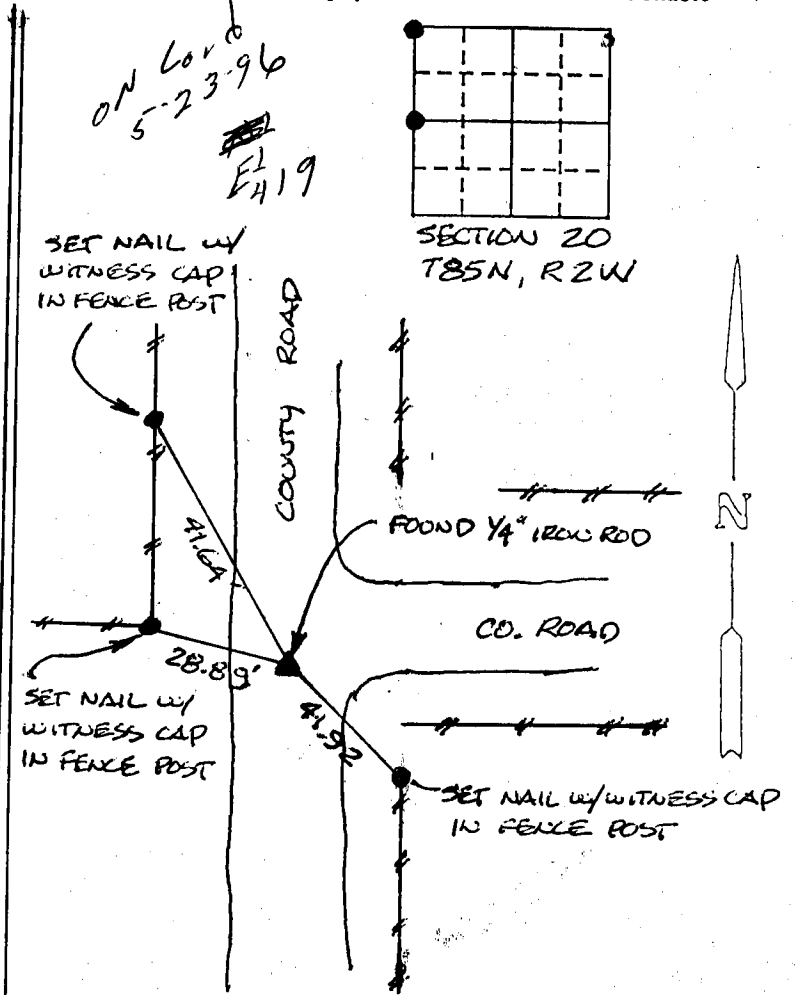 ON
5-23-96
E 1/4 19
SECTION 20
T85N, R2W
SET NAIL W/
WITNESS CAP
IN FENCE POST
COUNTY ROAD
41.64
FOUND 1/4" IRON ROD
N
CO. ROAD
28.89'
41.92
SET NAIL W/
WITNESS CAP
IN FENCE POST
SET NAIL W/WITNESS CAP
IN FENCE POST